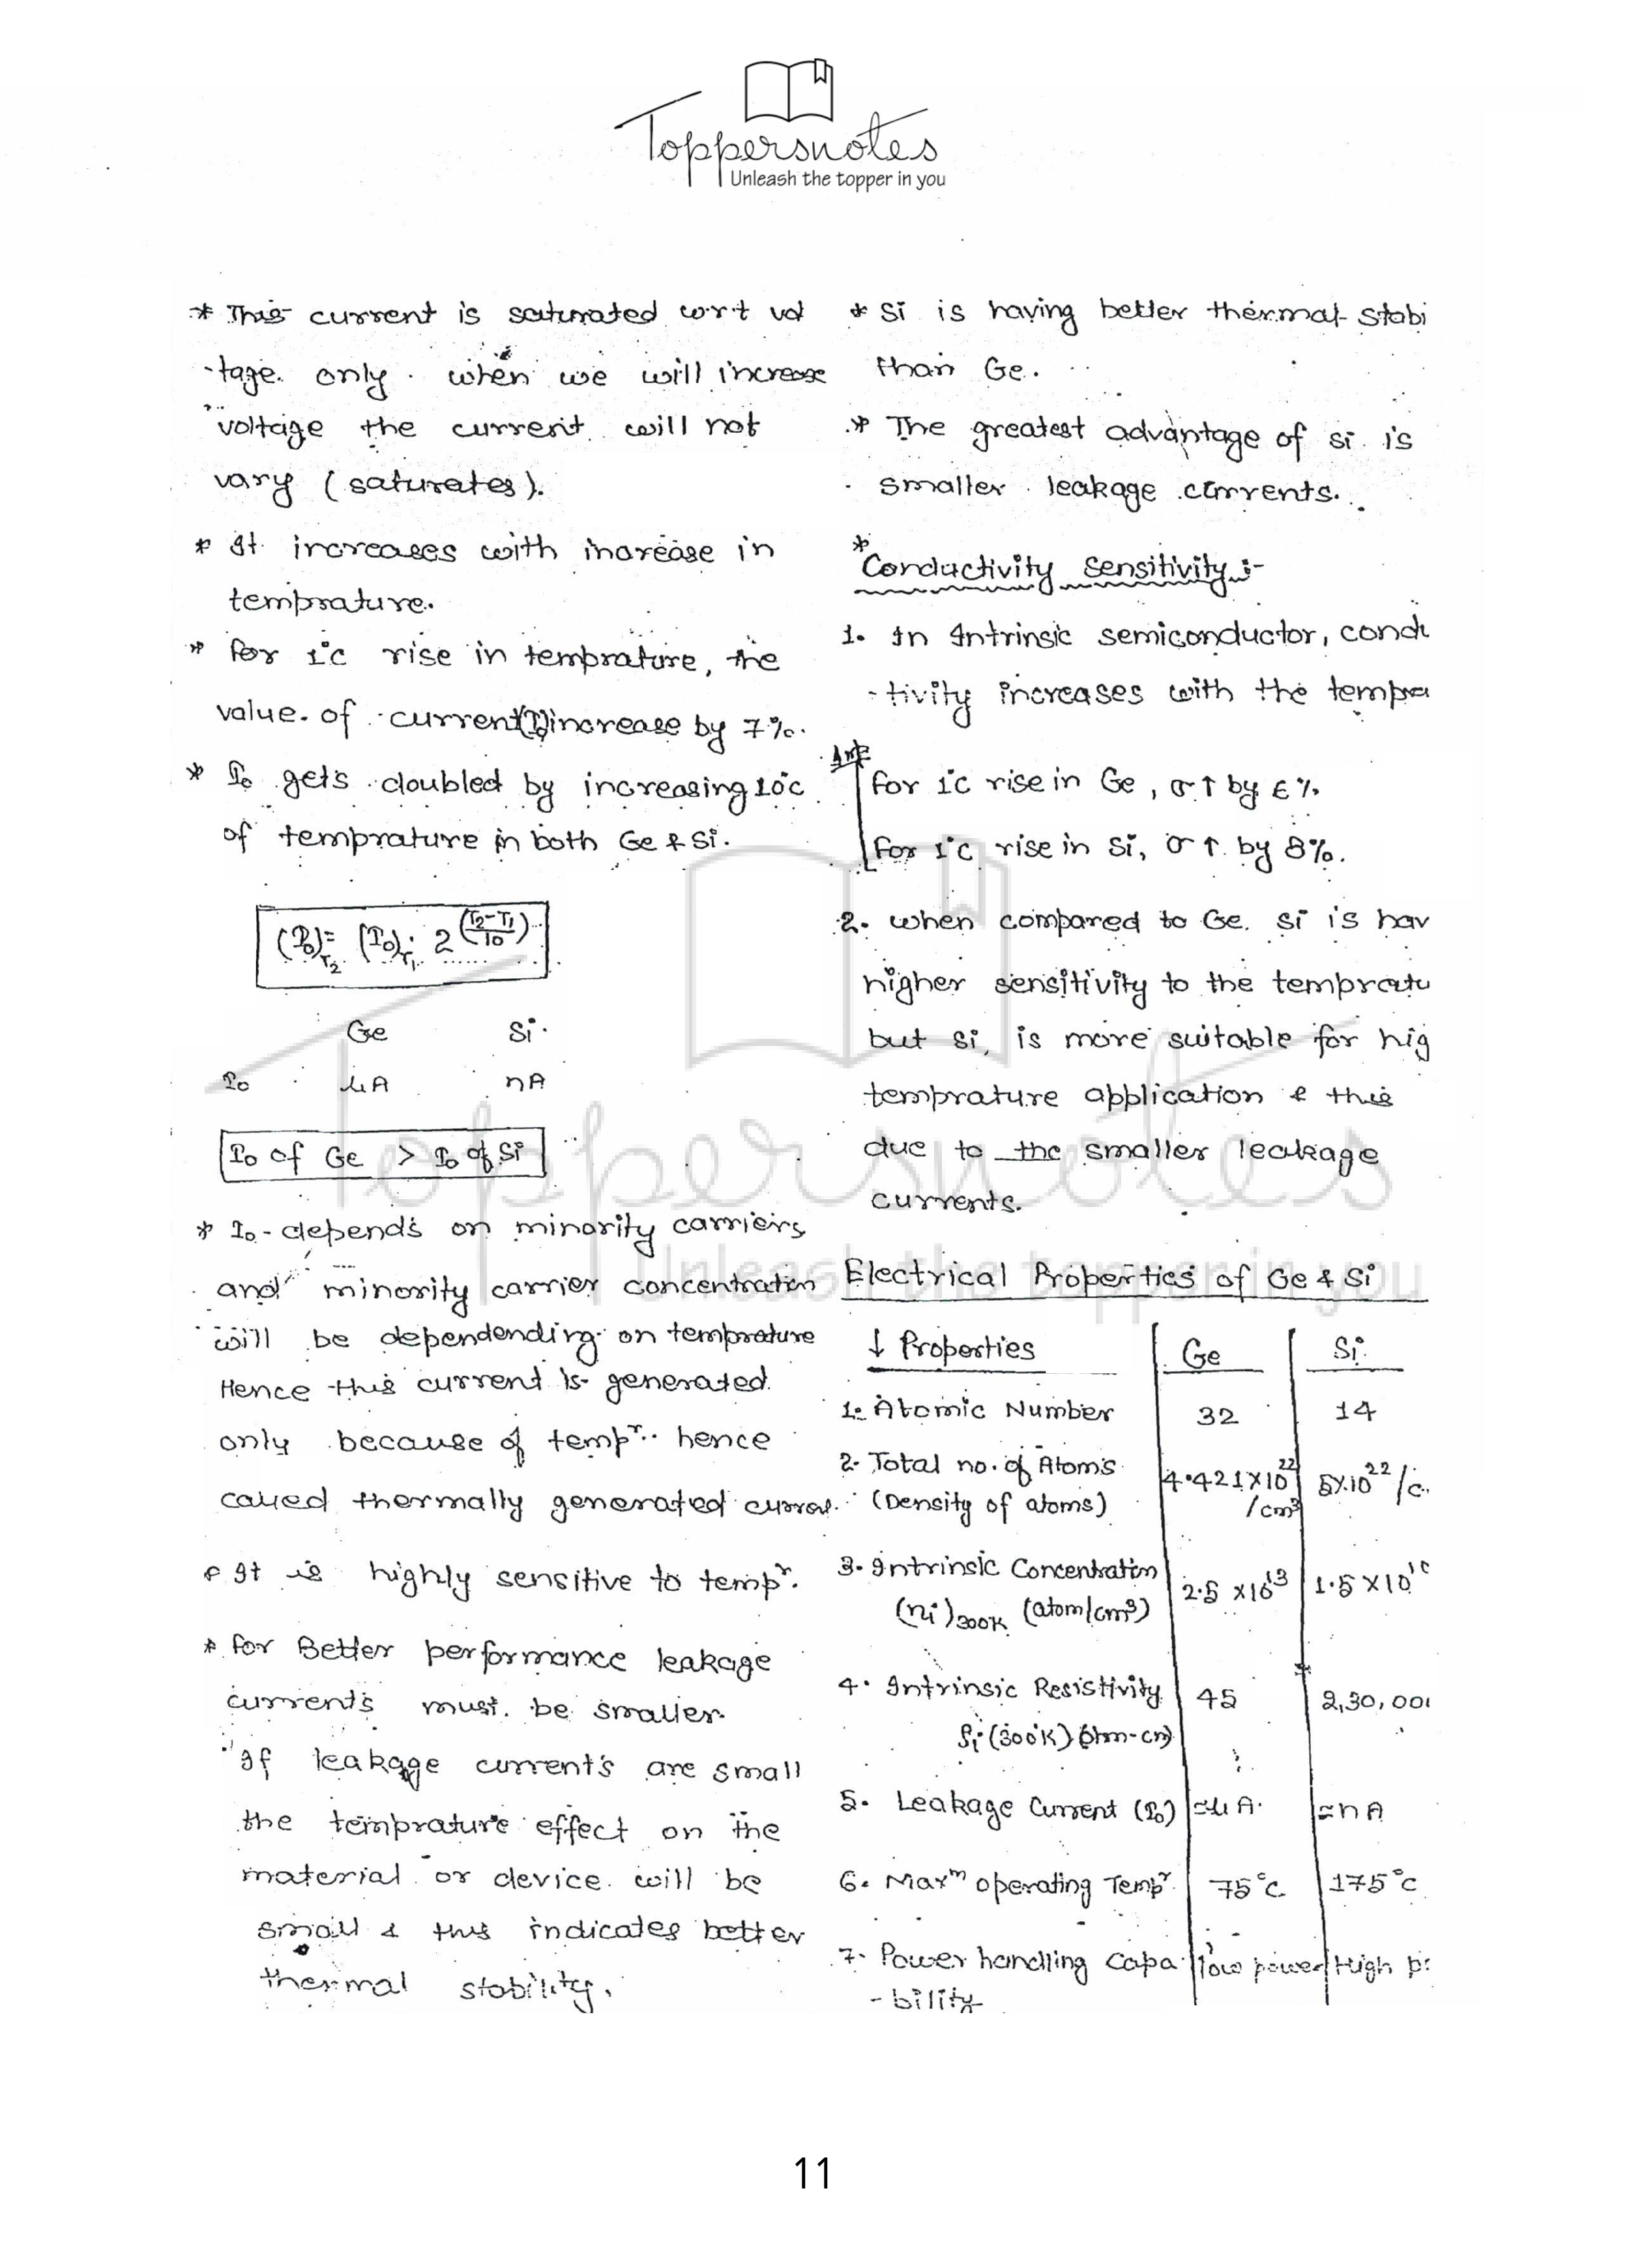 Toppersnotes
Unleash the topper in you
* This current is saturated w.r.t vol
-tage. only when we will increase
voltage the current will not
vary (saturates).
* It increases with increase in
temprature.
* for 1°c rise in temprature, the
value of current(I0) increase by 7%.
* I0 gets doubled by increasing 10°c
of temprature in both Ge & Si.
(I0)T2 = (I0)T1 . 2^((T2-T1)/10)
Ge Si
I0 μA nA
I0 of Ge > I0 of Si
* I0 depends on minority carriers
and minority carrier concentration
will be dependending on temprature
Hence this current is generated
only because of temp^r. hence
called thermally generated current.
* It is highly sensitive to temp^r.
* for Better performance leakage
currents must be smaller.
If leakage currents are small
the temprature effect on the
material or device will be
small & this indicates better
thermal stability.
* Si is having better thermal stabi
than Ge.
* The greatest advantage of si is
smaller leakage currents.
* Conductivity sensitivity :-
1. In Intrinsic semiconductor, condu
-tivity increases with the tempra
Imp
for 1°c rise in Ge, σ↑ by 6%
for 1°c rise in Si, σ↑ by 8%.
2. when compared to Ge. Si is hav
higher sensitivity to the tempratu
but si, is more suitable for hig
temprature application & this
due to the smaller leakage
currents.
Electrical Properties of Ge & Si
↓ Properties Ge Si
1. Atomic Number 32 14
2. Total no. of Atoms 4.421×10^22 5×10^22/c
(Density of atoms) /cm³
3. Intrinsic Concentration 2.5×10^13 1.5×10^1
(ni)300K (atom/cm³)
4. Intrinsic Resistivity 45 2,30,00
ρi (300°K) (ohm-cm)
5. Leakage Current (I0) ≈μA ≈nA
6. Max^m operating Temp^r 75°c 175°c
7. Power handling Capa low power High p
-bility
11